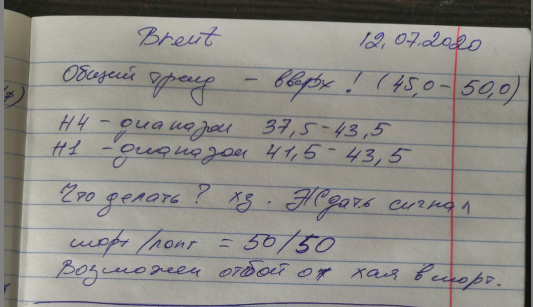 Brent 12.07.2020
Общий тренд - вверх! (45,0 - 50,0)
H4 - диапазон 37,5 - 43,5
H1 - диапазон 41,5 - 43,5
Что делать? хз. Ждать сигнал
шорт/лонг = 50/50
Возможен отбой от хая в шорт.